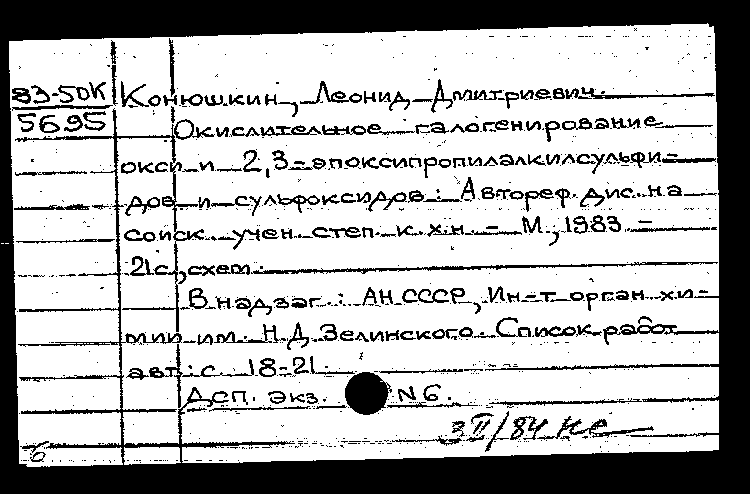 83-50К Конюшкин, Леонид Дмитриевич.
5695 Окислительное галогенирование
окси и 2,3-эпоксипропилалкилсульфи-
дов и сульфоксидов: Автореф. дис. на
соиск. учен. степ. к.х.н. - М., 1983. -
21с., схем.
В надзаг.: АН СССР, Ин-т орган. хи-
мии им. Н.Д. Зелинского. Список работ
авт.: с. 18-21.
Дсп. экз. N 6.
3 II/84 не
б